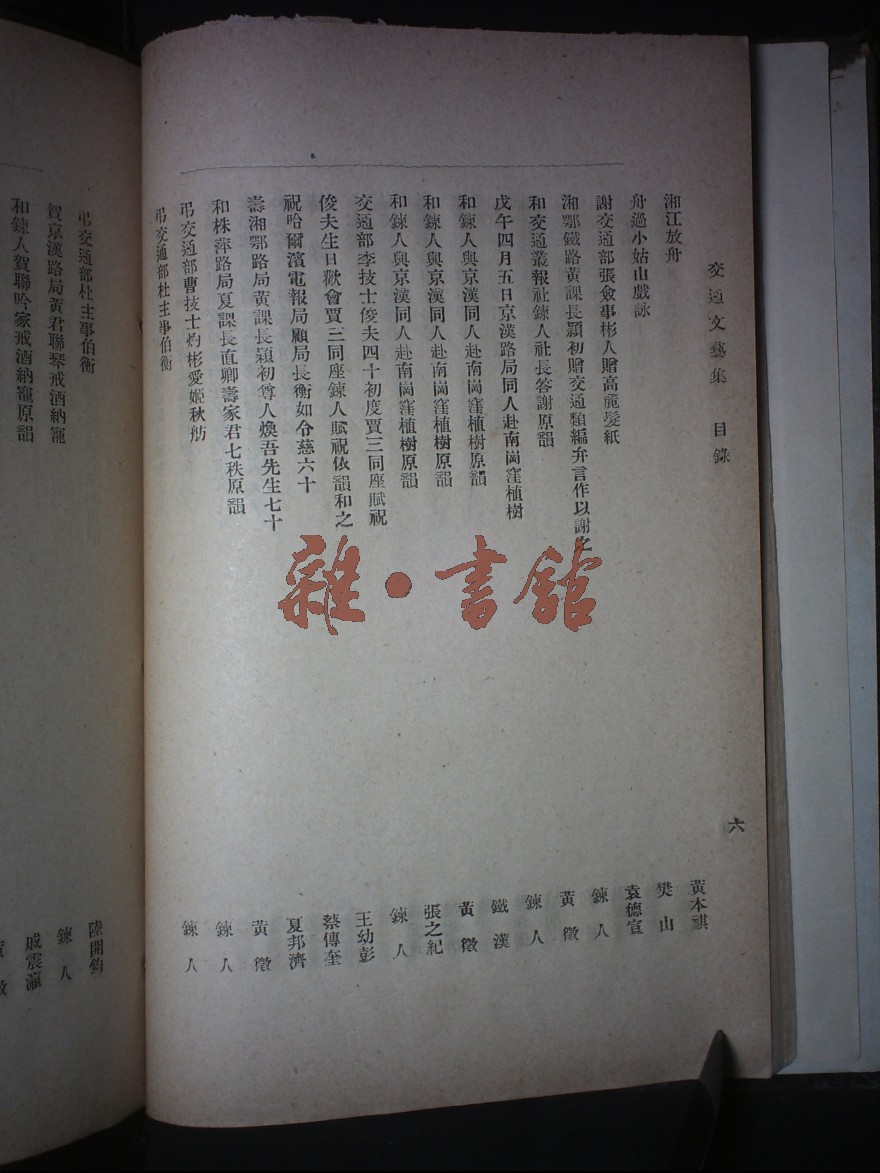 交通文藝集　目錄　六
湘江放舟　黃本祺
舟過小姑山戲詠　樊山
謝交通部張僉事彬人贈高麗髮紙　袁德宣
湘鄂鐵路黃課長穎初贈交通類編弁言作以謝之　鍊人
和交通叢報社鍊人社長答謝原韻　黃徵
戊午四月五日京漢路局同人赴南崗窪植樹　鍊人
和鍊人與京漢同人赴南崗窪植樹原韻　鐵漢
和鍊人與京漢同人赴南崗窪植樹原韻　黃徵
和鍊人與京漢同人赴南崗窪植樹原韻　張之紀
交通部李技士俊夫四十初度賈三同座賦祝　鍊人
俊夫生日歡會賈三同座鍊人賦祝依韻和之　王幼彭
祝哈爾濱電報局顧局長衡如令慈六十　蔡傳奎
壽湘鄂路局黃課長穎初尊人煥吾先生七十　夏邦濟
和株萍路局夏課長直卿壽家君七秩原韻　黃徵
弔交通部曹技士灼彬愛姬秋舫　鍊人
弔交通部杜主事伯衡　鍊人
弔交通部杜主事伯衡　陸開鈞
賀京漢路局黃君聯琴戒酒納寵　鍊人
和鍊人賀聯吟家戒酒納寵原韻　戚震瀛
雜·書館